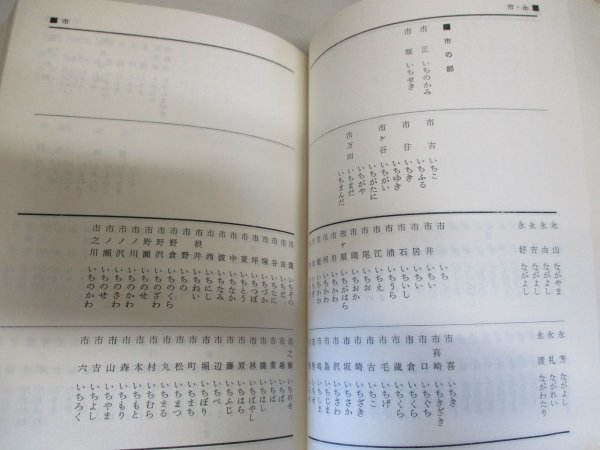 市・永■
■市の部
市正 いちのかみ
市堰 いちせき
市古 いちこ
いちふる
市往 いちき
いちゆき
市ヶ谷 いちがい
いちがたに
いちがや
市万田 いちまだ
いちまんだ
永山 ながやま
永由 ながよし
永吉 ながよし
永好 ながよし
市井 いちい
市居 いちい
市石 いちいし
市浦 いちうら
市江 いちえ
市尾 いちお
市岡 いちおか
市ヶ原 いちがはら
市川 いちかわ
永芳 ながよし
永礼 ながれい
永渡 ながわたり
市喜 いちき
市喜崎 いちきざき
市口 いちぐち
市倉 いちくら
市蔵 いちくら
市毛 いちげ
市古 いちこ
市崎 いちざき
市坂 いちさか
市沢 いちさわ
市島 いちじま
■市
市園 いちその
市田 いちだ
市谷 いちたに
市塚 いちづか
市坪 いちつぼ
市東 いちとう
市中 いちなか
市波 いちなみ
市西 いちにし
市根井 いちねい
市野 いちの
市野倉 いちのくら
市野沢 いちのざわ
市野瀬 いちのせ
市ノ川 いちのかわ
市ノ沢 いちのさわ
市ノ瀬 いちのせ
市之川 いちのかわ
市之瀬 いちのせ
市場 いちば
市葉 いちば
市橋 いちはし
市林 いちばやし
市原 いちはら
市藤 いちふじ
市辺 いちべ
市堀 いちぼり
市町 いちまち
市松 いちまつ
市丸 いちまる
市村 いちむら
市本 いちもと
市森 いちもり
市山 いちやま
市吉 いちよし
市六 いちろく